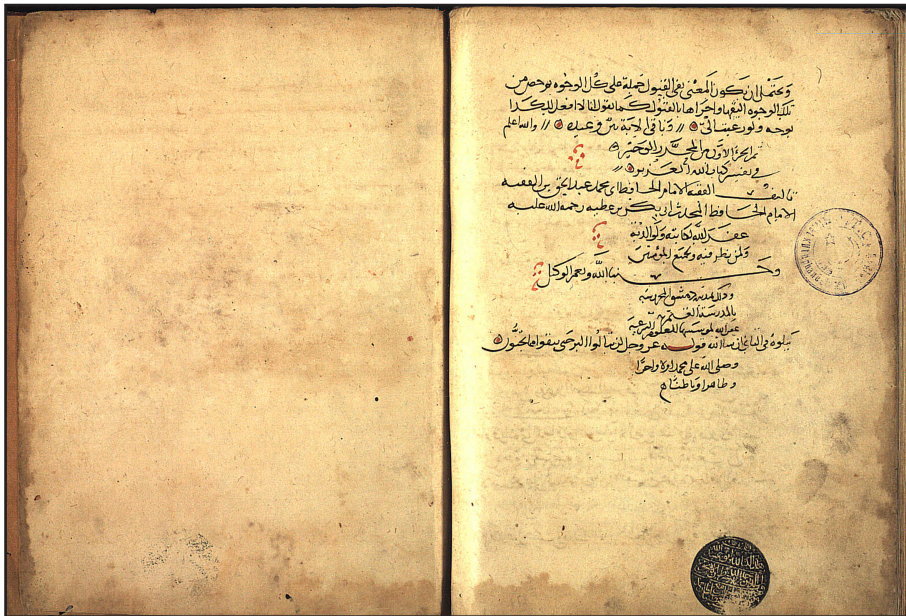 ويحتمل ان تكون المعنى نفى القبول جملة على كل الوجوه بوحص من
تلك الوجوه اليقها واحراها بالقبول كما نقول انا لا افعل لك كدا
بوجه ولو رعبت الى وباقى الاية بين وعيده والله اعلم
تم الجزء الاول من المحرر الوجيز
في تفسير كتاب الله العزيز
تاليف الفقيه الامام الحافظ ابي محمد عبد الحق بن الفقيه
الامام الحافظ المحدث ابي بكر بن عطيه رحمه الله عليه
غفر الله لكاتبه ولوالديه
ولمن نظر فيه ولجميع المؤمنين
وحسبنا الله ونعم الوكيل
وذلك بمدينه دمشق المحروسه
بالمدرسة
غفر الله
يتلوه في الثاني ان شا الله قوله عز وجل لن تنالوا البر حتى تنفقوا مما تحبون
وصلى الله على محمد اولا واخرا
وظاهرا وباطنا